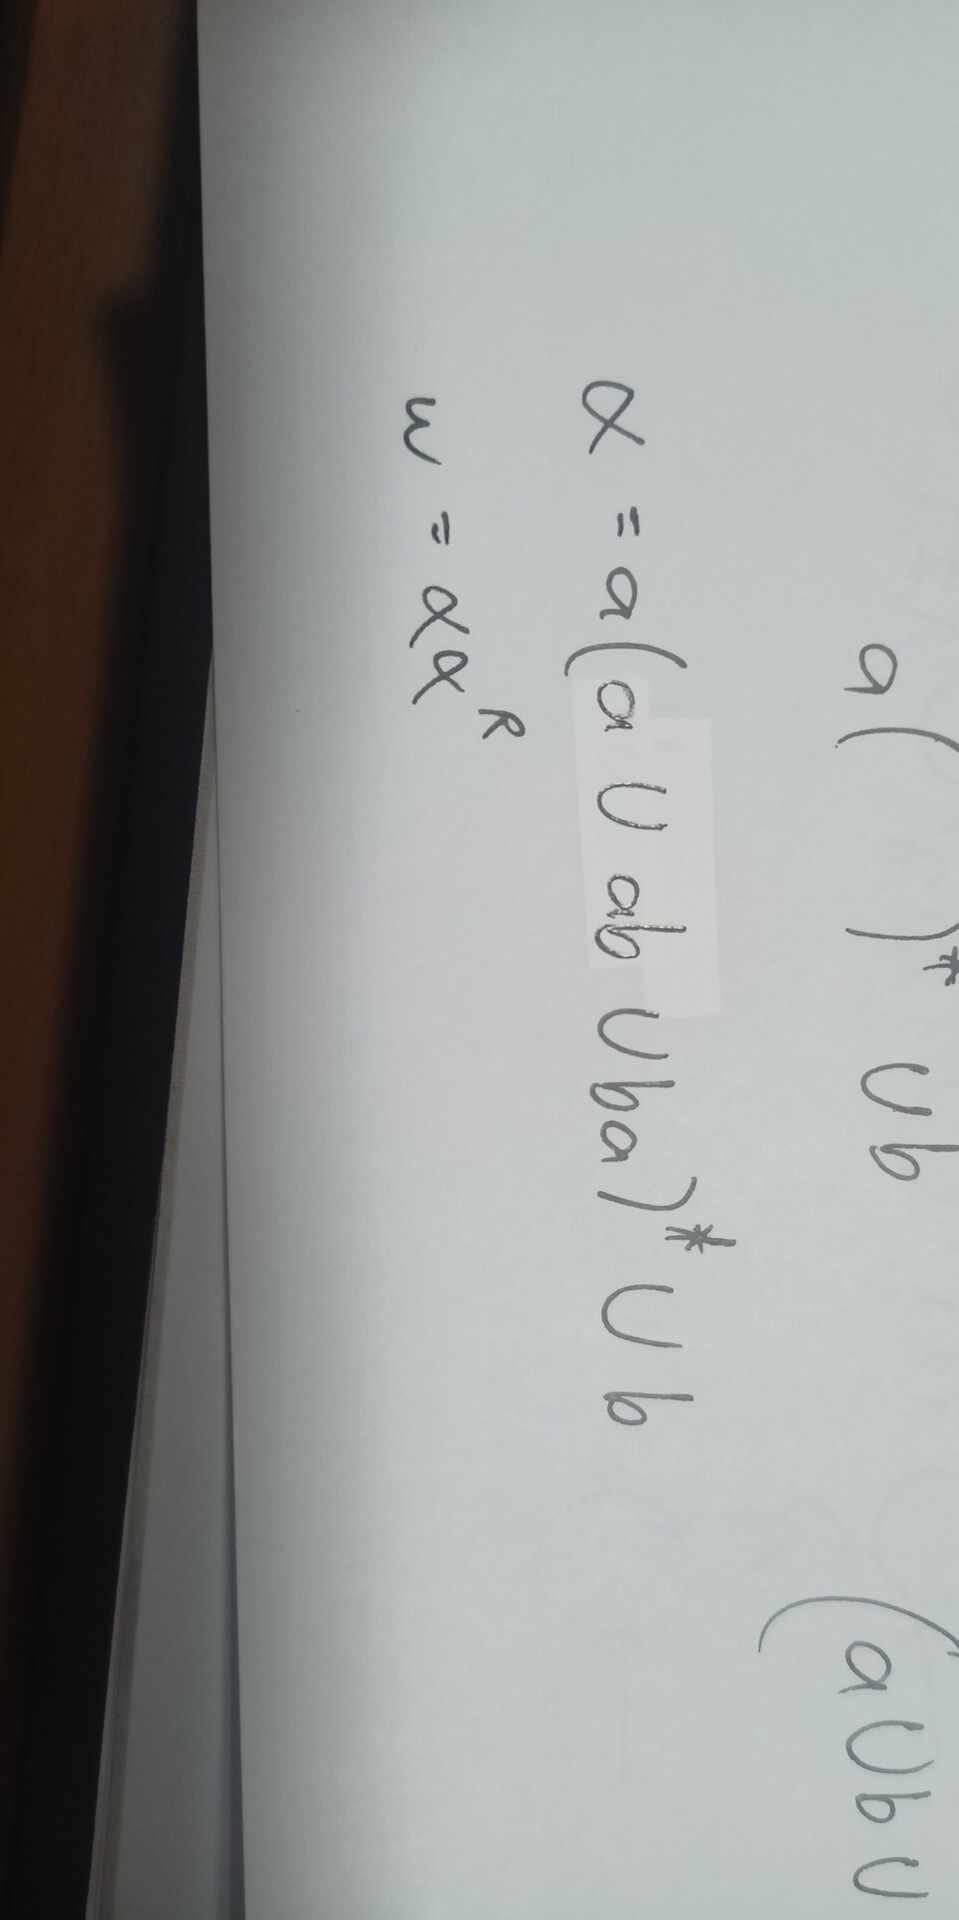 a(      )* ∪ b      (a ∪ b ∪
α = a(a ∪ ab ∪ ba)* ∪ b
w = αα^R